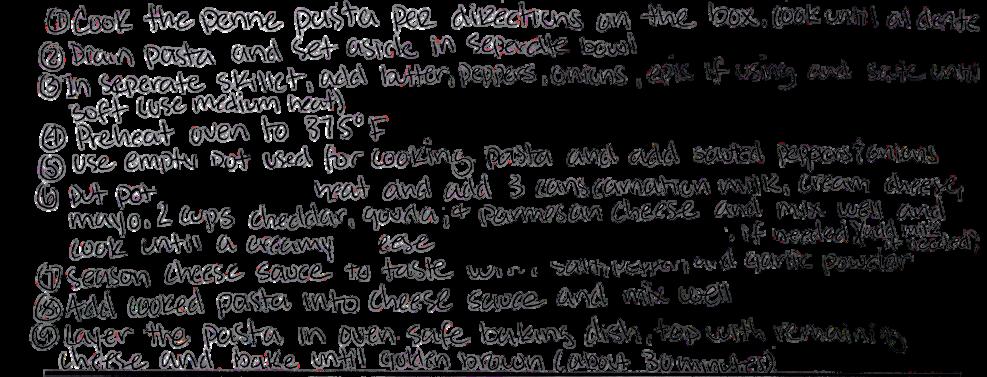 ① Cook the penne pasta per directions on the box. cook until al dente
② Drain pasta and set aside in seperate bowl
③ In seperate skillet, add butter, peppers, onions, if using and saute until
soft (use medium heat)
④ Preheat oven to 375° F
⑤ use empty pot used for cooking pasta and add sauted peppers + onions
⑥ Put pot heat and add 3 cans carnation milk, cream cheese,
mayo, 2 cups cheddar, gouda, + Parmesan cheese and mix well and
cook until a creamy if needed)
⑦ Season cheese sauce to taste and garlic powder
⑧ Add cooked pasta into cheese sauce and mix well
⑨ Layer the pasta in oven safe baking dish, top with remaining
cheese and bake until golden brown (about 30 minutes)